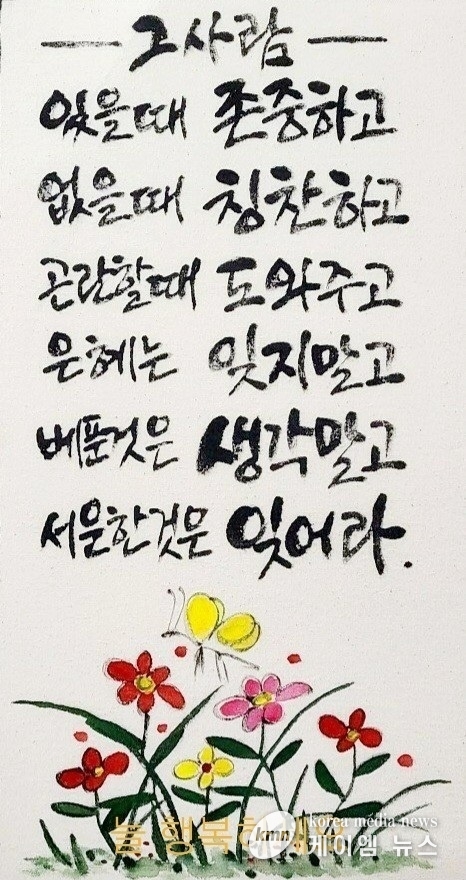 그사람
있을때 존중하고
없을때 칭찬하고
곤란할때 도와주고
은혜는 잊지말고
베푼것은 생각말고
서운한것은 잊어라.
늘 행복하세요
korea media news
kmn 케이엠 뉴스